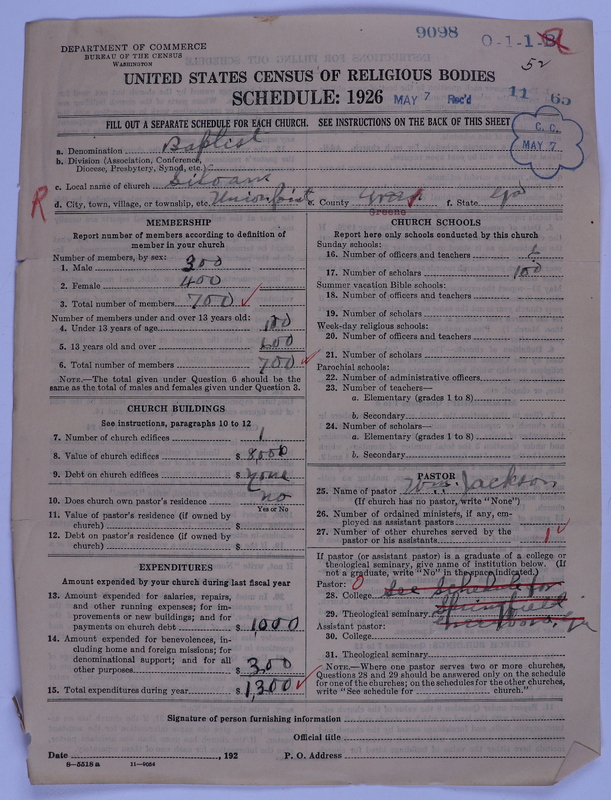 9098 O-1-1-B
52
DEPARTMENT OF COMMERCE
BUREAU OF THE CENSUS
WASHINGTON
UNITED STATES CENSUS OF RELIGIOUS BODIES
SCHEDULE: 1926 MAY 7 Rec'd 11 65
FILL OUT A SEPARATE SCHEDULE FOR EACH CHURCH. SEE INSTRUCTIONS ON THE BACK OF THIS SHEET
C. C.
MAY 7
a. Denomination Baptist
b. Division (Association, Conference,
Diocese, Presbytery, Synod, etc.)
c. Local name of church Siloam
R d. City, town, village, or township, etc. Union Point e. County Green f. State Ga
Greene
MEMBERSHIP
Report number of members according to definition of
member in your church
Number of members, by sex:
1. Male 300
2. Female 400
3. Total number of members 700
Number of members under and over 13 years old:
4. Under 13 years of age 100
5. 13 years old and over 600
6. Total number of members 700
NOTE.—The total given under Question 6 should be
the same as the total of males and females given under Question 3.
CHURCH BUILDINGS
See instructions, paragraphs 10 to 12
7. Number of church edifices 1
8. Value of church edifices $ 8,000
9. Debt on church edifices $ None
10. Does church own pastor's residence no
Yes or No
11. Value of pastor's residence (if owned by
church) $
12. Debt on pastor's residence (if owned by
church) $
EXPENDITURES
Amount expended by your church during last fiscal year
13. Amount expended for salaries, repairs,
and other running expenses; for im-
provements or new buildings; and for
payments on church debt $ 1,000
14. Amount expended for benevolences, in-
cluding home and foreign missions; for
denominational support; and for all
other purposes $ 300
15. Total expenditures during year $ 1,300
CHURCH SCHOOLS
Report here only schools conducted by this church
Sunday schools:
16. Number of officers and teachers
17. Number of scholars 100
Summer vacation Bible schools:
18. Number of officers and teachers
19. Number of scholars
Week-day religious schools:
20. Number of officers and teachers
21. Number of scholars
Parochial schools:
22. Number of administrative officers
23. Number of teachers—
a. Elementary (grades 1 to 8)
b. Secondary
24. Number of scholars—
a. Elementary (grades 1 to 8)
b. Secondary
PASTOR
25. Name of pastor Wm. Jackson
(If church has no pastor, write "None")
26. Number of ordained ministers, if any, em-
ployed as assistant pastors
27. Number of other churches served by the
pastor or his assistants 1
If pastor (or assistant pastor) is a graduate of a college or
theological seminary, give name of institution below. (If
not a graduate, write "No" in the space indicated.)
Pastor: 0
28. College See Schedule for
29. Theological seminary Springfield
Assistant pastor: Greensboro, Ga
30. College
31. Theological seminary
NOTE.—Where one pastor serves two or more churches,
Questions 28 and 29 should be answered only on the schedule
for one of the churches; on the schedules for the other churches,
write "See schedule for church."
Signature of person furnishing information
Official title
Date , 192 P. O. Address
8-5518 a 11-9054